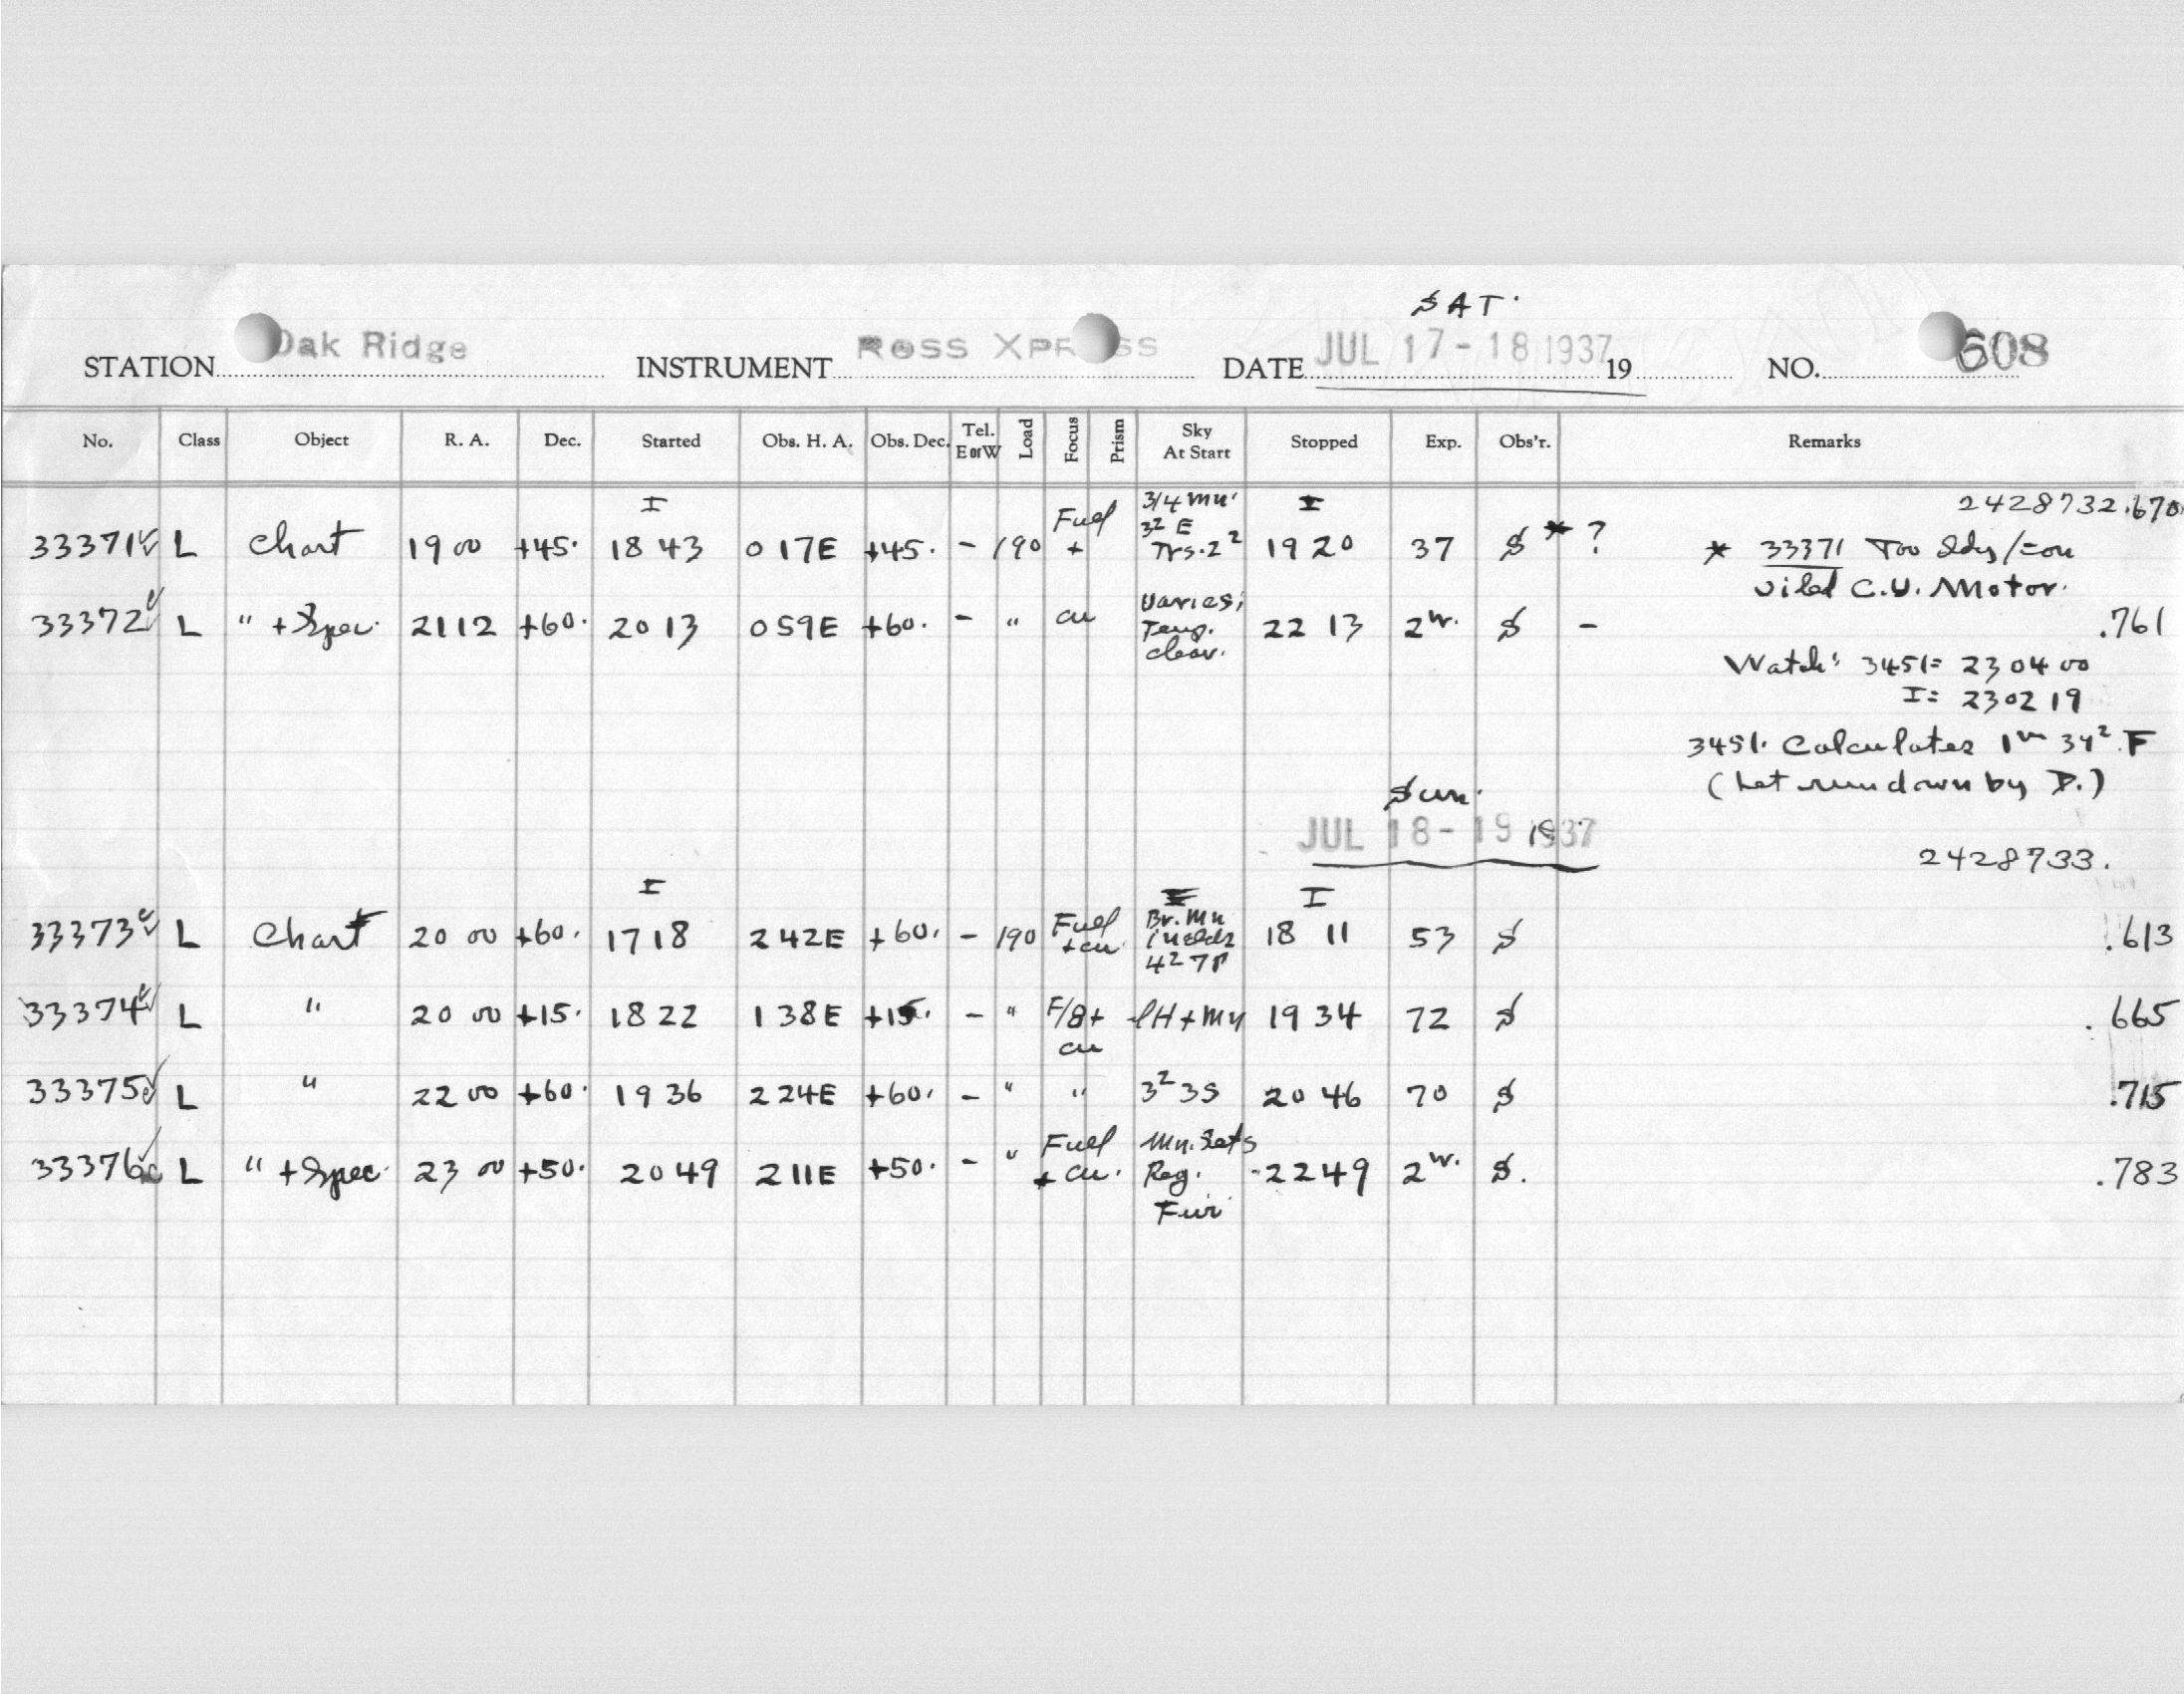 SAT.
STATION Oak Ridge INSTRUMENT ROSS XPRESS DATE JUL 17-18 1937 19 NO. 608
No. Class Object R. A. Dec. Started Obs. H. A. Obs. Dec. Tel. E or W Load Focus Prism Sky At Start Stopped Exp. Obs'r. Remarks
I 3/4 Mn. I 2428732.670
33371 L Chart 19 00 +45. 18 43 0 17E +45. - 190 Fuel + 3² E Trs. 2² 19 20 37 S * ?
* 33371 Too
C.U. Motor.
33372 L " + Spec. 21 12 +60. 20 13 0 59E +60. - " cu Varies; Temp. clear. 22 13 2 S - .761
Watch: 3451= 23 04 00
I= 23 02 19
3451. Calculates 1m 34² F
(Let run down by D.)
Sun.
JUL 18-19 1937
2428733.
I I
33373 L Chart 20 00 +60. 17 18 2 42E +60. - 190 Fuel + cu. Br. Mn 18 11 53 S .613
33374 L " 20 00 +15. 18 22 1 38E +15. - " F/8+ cu + Mn 19 34 72 S .665
33375 L " 22 00 +60. 19 36 2 24E +60. - " " 3² 3S 20 46 70 S .715
33376 L " + Spec. 23 00 +50. 20 49 2 11E +50. - " Fuel + cu. Mn. Sets Reg. 22 49 2 S. .783